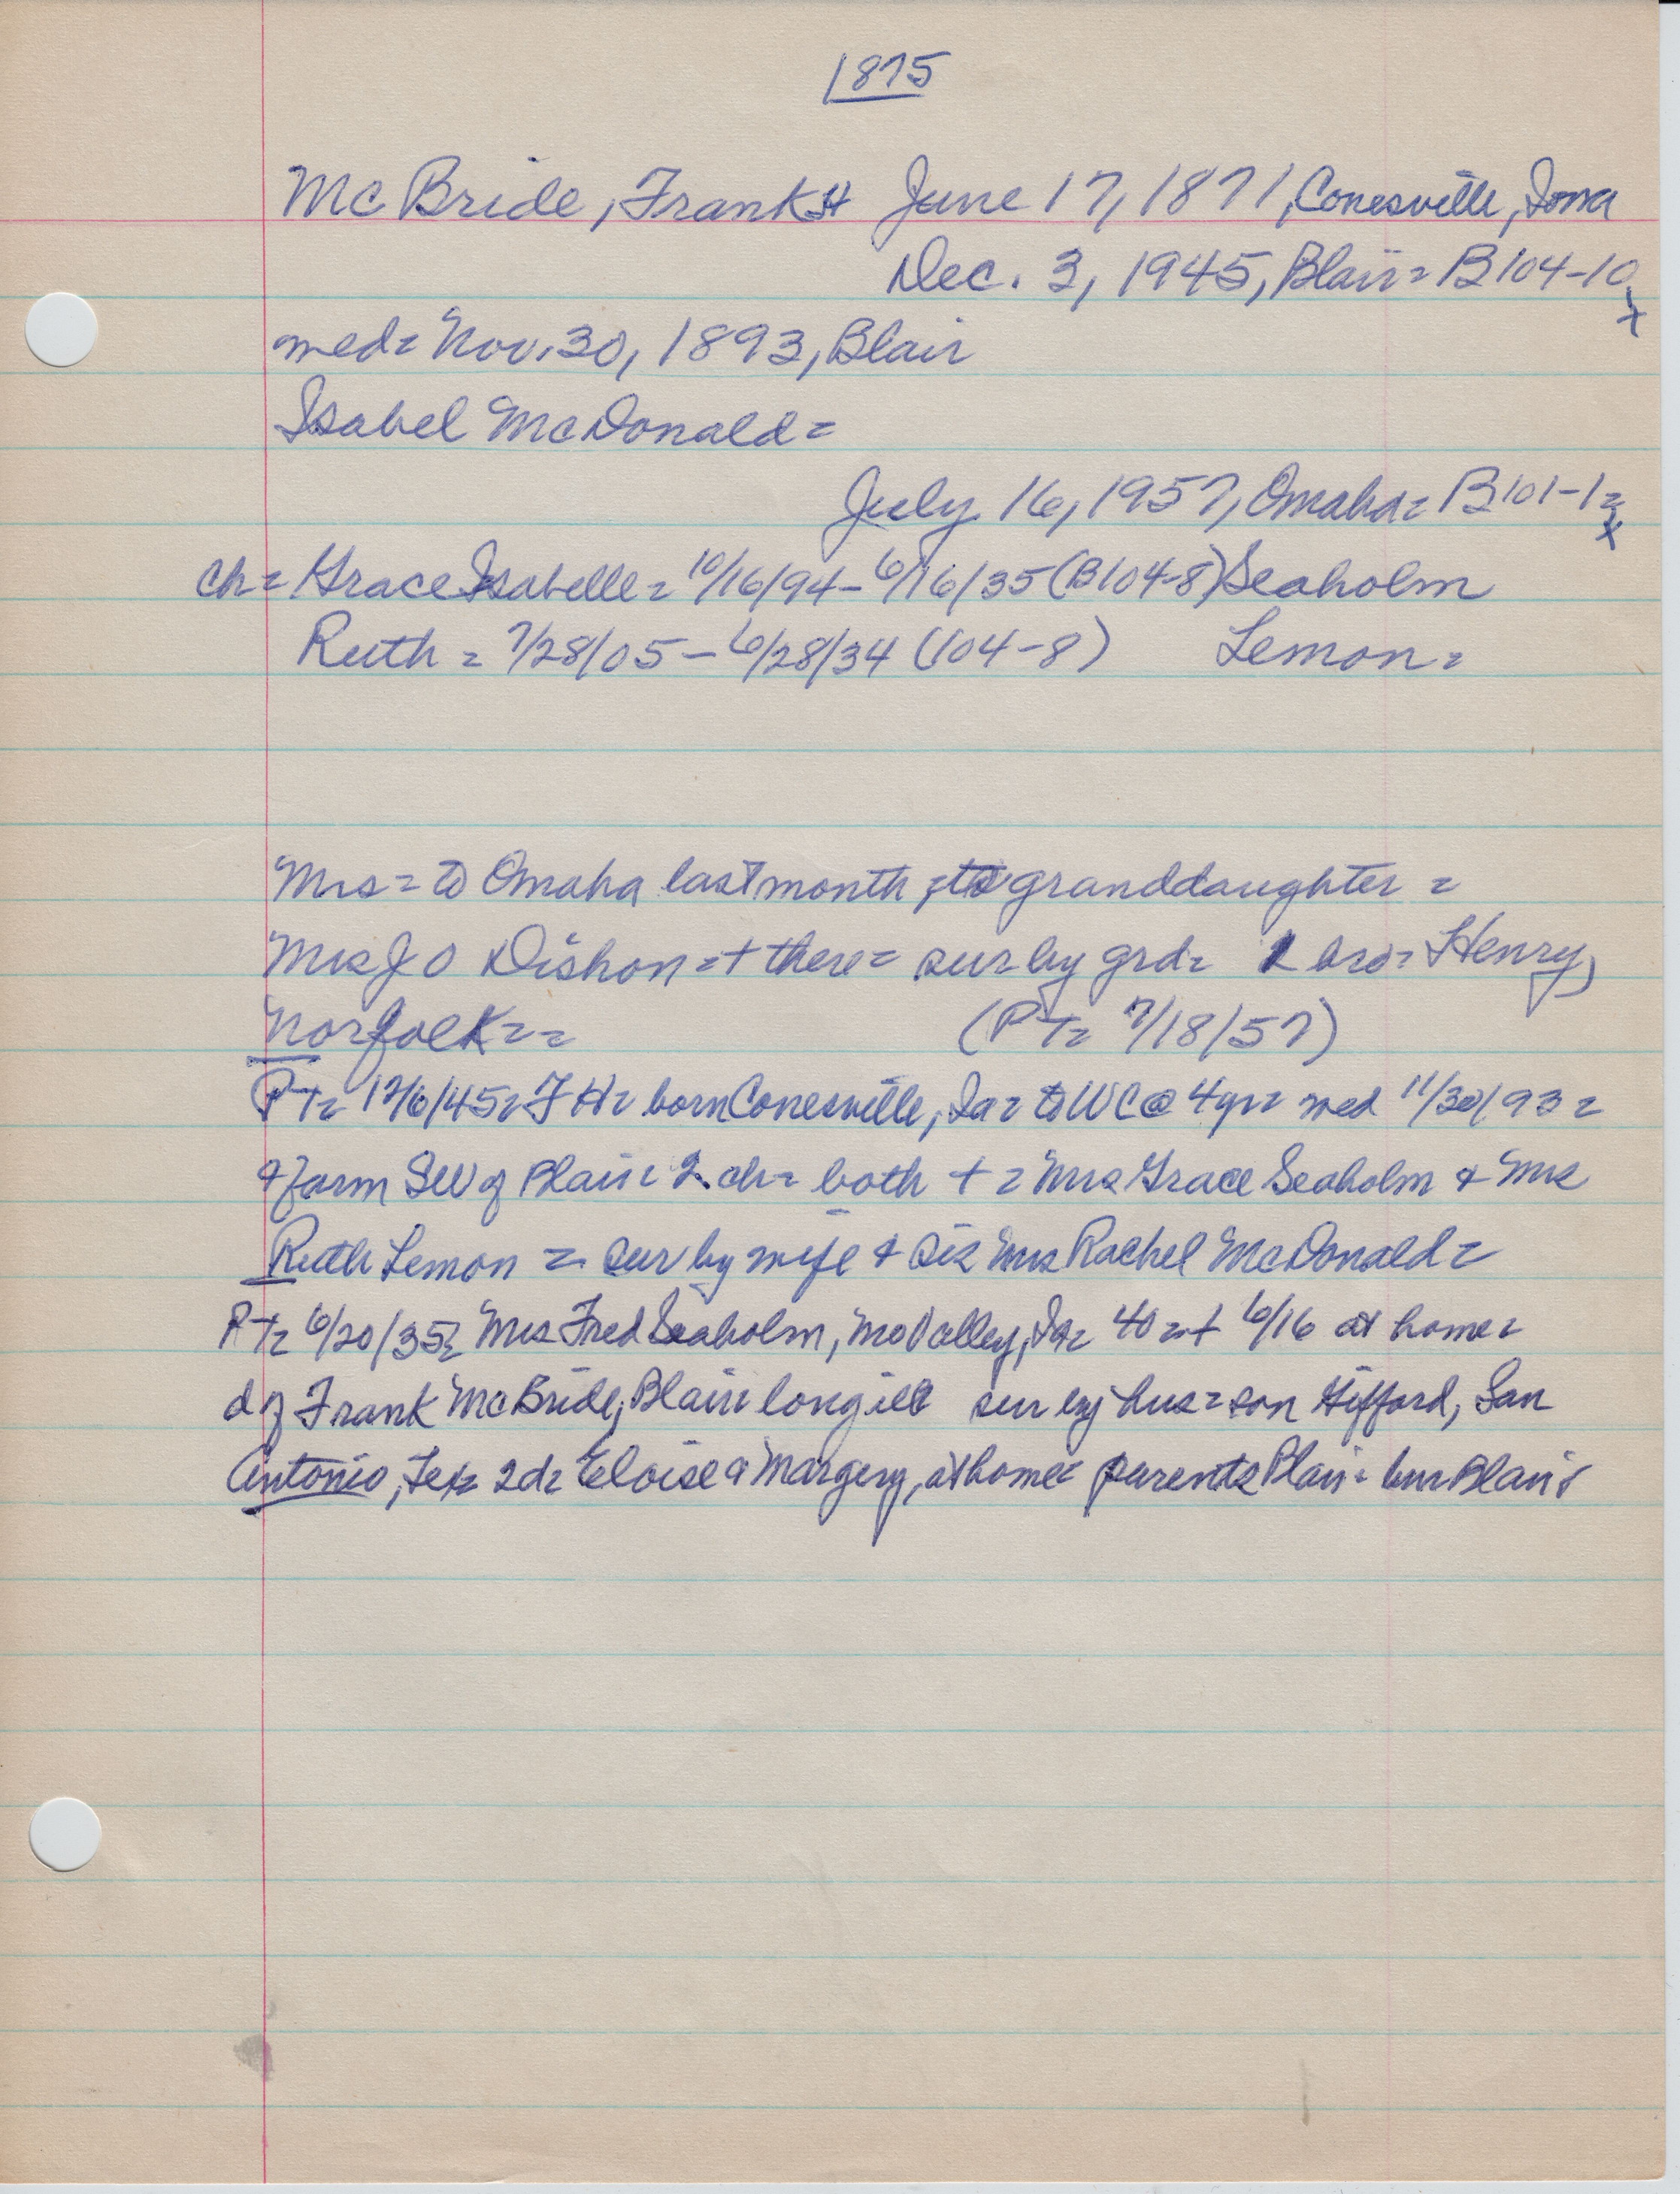 1875
McBride, Frank H June 17, 1871, Conesville, Iowa
Dec. 3, 1945, Blair = B104-10
x
med = Nov. 30, 1893, Blair
Isabel McDonald =
July 16, 1957, Omaha = B101-1 =
x
ch = Grace Isabelle = 10/16/94 - 6/16/35 (B104-8) Seaholm
Ruth = 7/28/05 - 6/28/34 (104-8) Lemon =
Mrs = to Omaha last month = to granddaughter =
Mrs J O Dishon = + there = sur by grd = 1 bro = Henry,
Norfolk = = (PT = 7/18/57)
PT = 12/6/45 = F H = born Conesville, Ia = to WC @ 4 yr = med 11/30/93 =
& farm SW of Blair = 2 ch = both + = Mrs Grace Seaholm & Mrs
Ruth Lemon = sur by wife & sis Mrs Rachel McDonald =
PT = 6/20/35 = Mrs Fred Seaholm, Mo Valley, Ia = 40 = + 6/16 at home =
d of Frank McBride, Blair = long ill sur by hus = son Gifford, San
Antonio, Tex = 2 d = Eloise & Margery, at home = parents Blair = bur Blair =